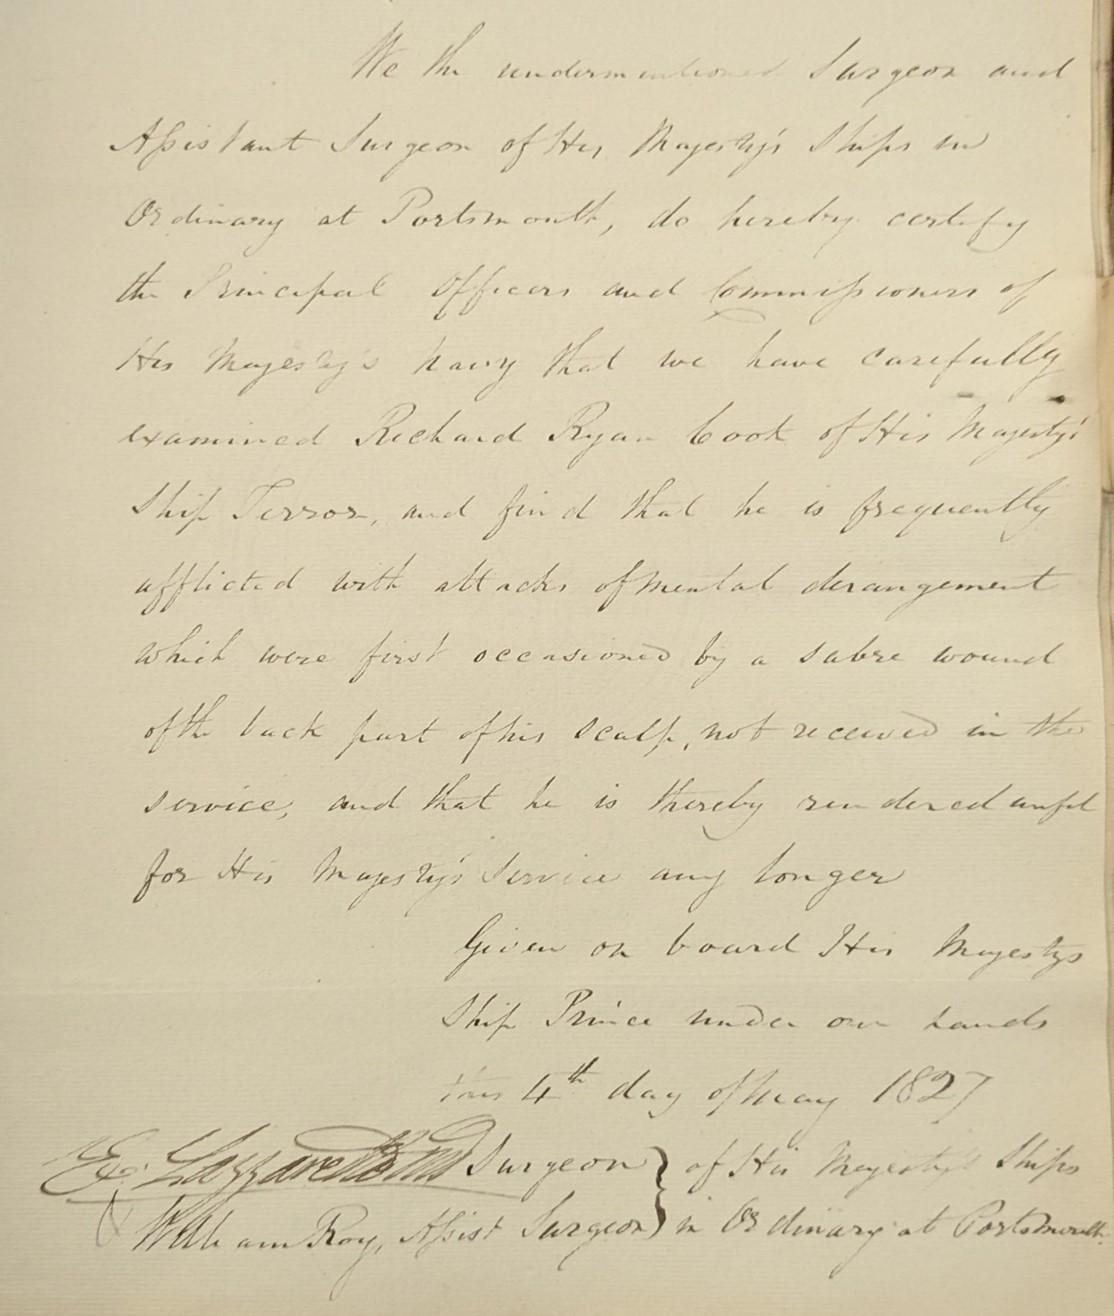 We the undermentioned Surgeon and
Assistant Surgeon of His Majesty's Ships in
Ordinary at Portsmouth, do hereby certify
the Principal Officers and Commissioners of
His Majesty's Navy that we have carefully
examined Richard Ryan Cook of His Majesty's
Ship Terror, and find that he is frequently
afflicted with attacks of mental derangement
which were first occasioned by a sabre wound
of the back part of his scalp, not received in the
service, and that he is thereby rendered unfit
for His Majesty's Service any longer
Given on board His Majestys
Ship Prince under our hands
this 4th day of May 1827
Surgeon } of His Majesty's Ships
William Roy, Assist Surgeon } in Ordinary at Portsmouth